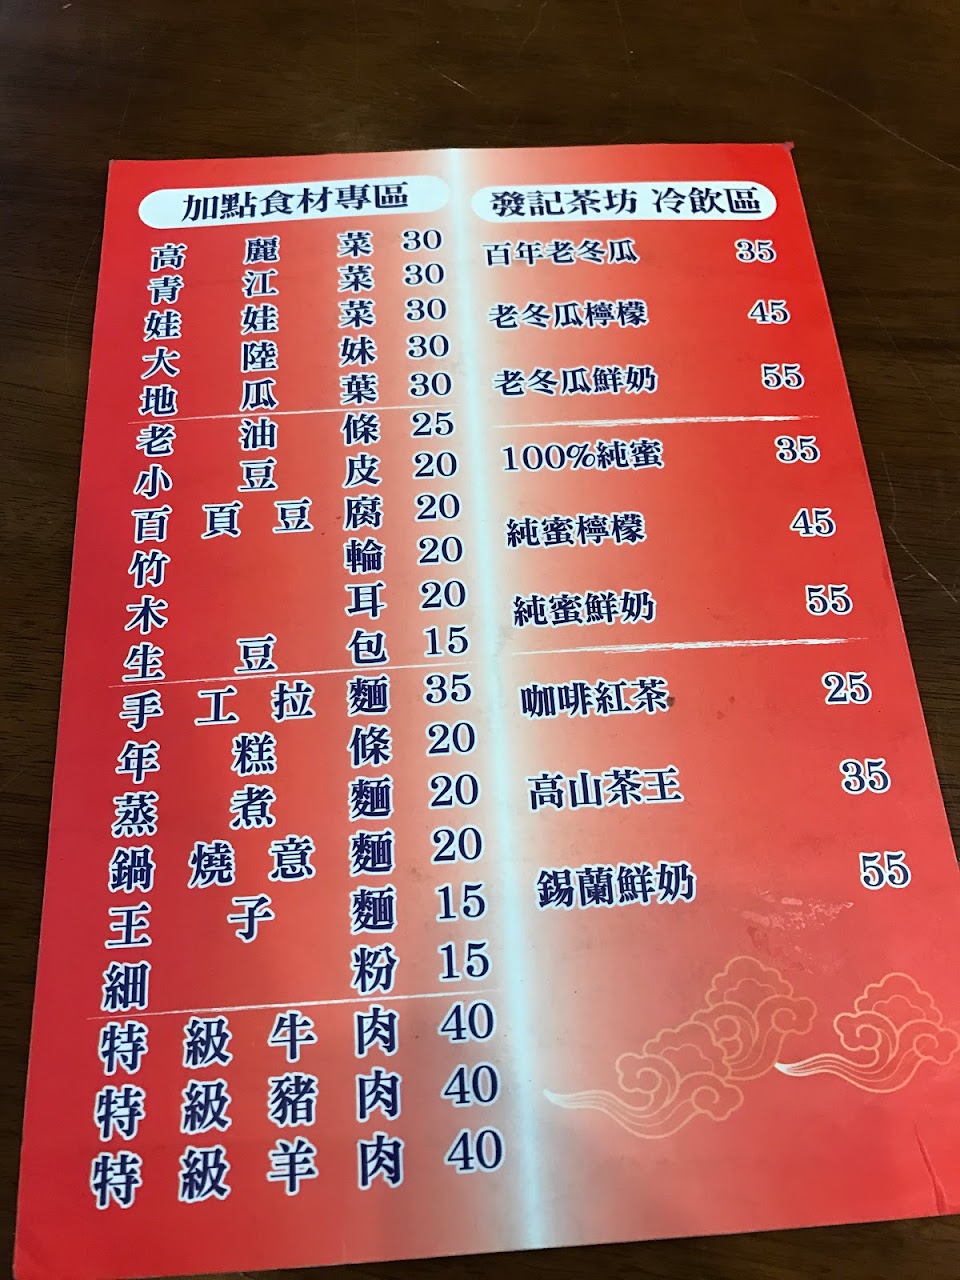 加點食材專區
高麗菜 30
青江菜 30
娃娃菜 30
大陸妹 30
地瓜葉 30
老油條 25
小豆皮 20
百頁豆腐 20
竹輪 20
木耳 20
生豆包 15
手工拉麵 35
年糕條 20
蒸煮麵 20
鍋燒意麵 20
王子麵 15
細粉 15
特級牛肉 40
特級豬肉 40
特級羊肉 40
發記茶坊 冷飲區
百年老冬瓜 35
老冬瓜檸檬 45
老冬瓜鮮奶 55
100%純蜜 35
純蜜檸檬 45
純蜜鮮奶 55
咖啡紅茶 25
高山茶王 35
錫蘭鮮奶 55